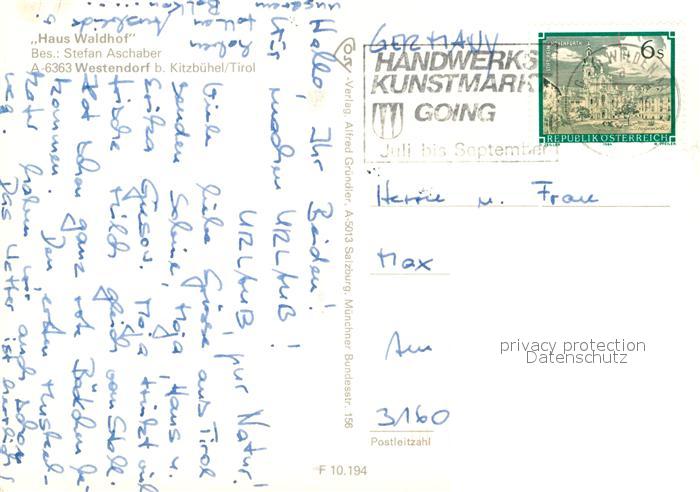 „Haus Waldhof"
Bes.: Stefan Aschaber
A-6363 Westendorf b. Kitzbühel/Tirol
Hallo, Ihr Beiden!
Wir machen URLAUB!
URLAUB, pur Natur!
Viele liebe Grüße aus Tirol
senden Sabine, Maja, Hans u.
Erika Maja trinkt viel
frische Milch gleich vom Stall.
Hat schon ganz rote Bäckchen be-
kommen. Den ersten Muskel-
kater haben wir auch schon
weg. Das Wetter ist herrlich!
-Verlag, Alfred Gründler, A-5013 Salzburg, Münchner Bundesstr. 156
F 10.194
GERMANY
HANDWERKS
KUNSTMARKT
GOING
Juli bis September
6 s
REPUBLIK ÖSTERREICH
Herrn u. Frau
Max
Am
privacy protection
Datenschutz
3160
Postleitzahl